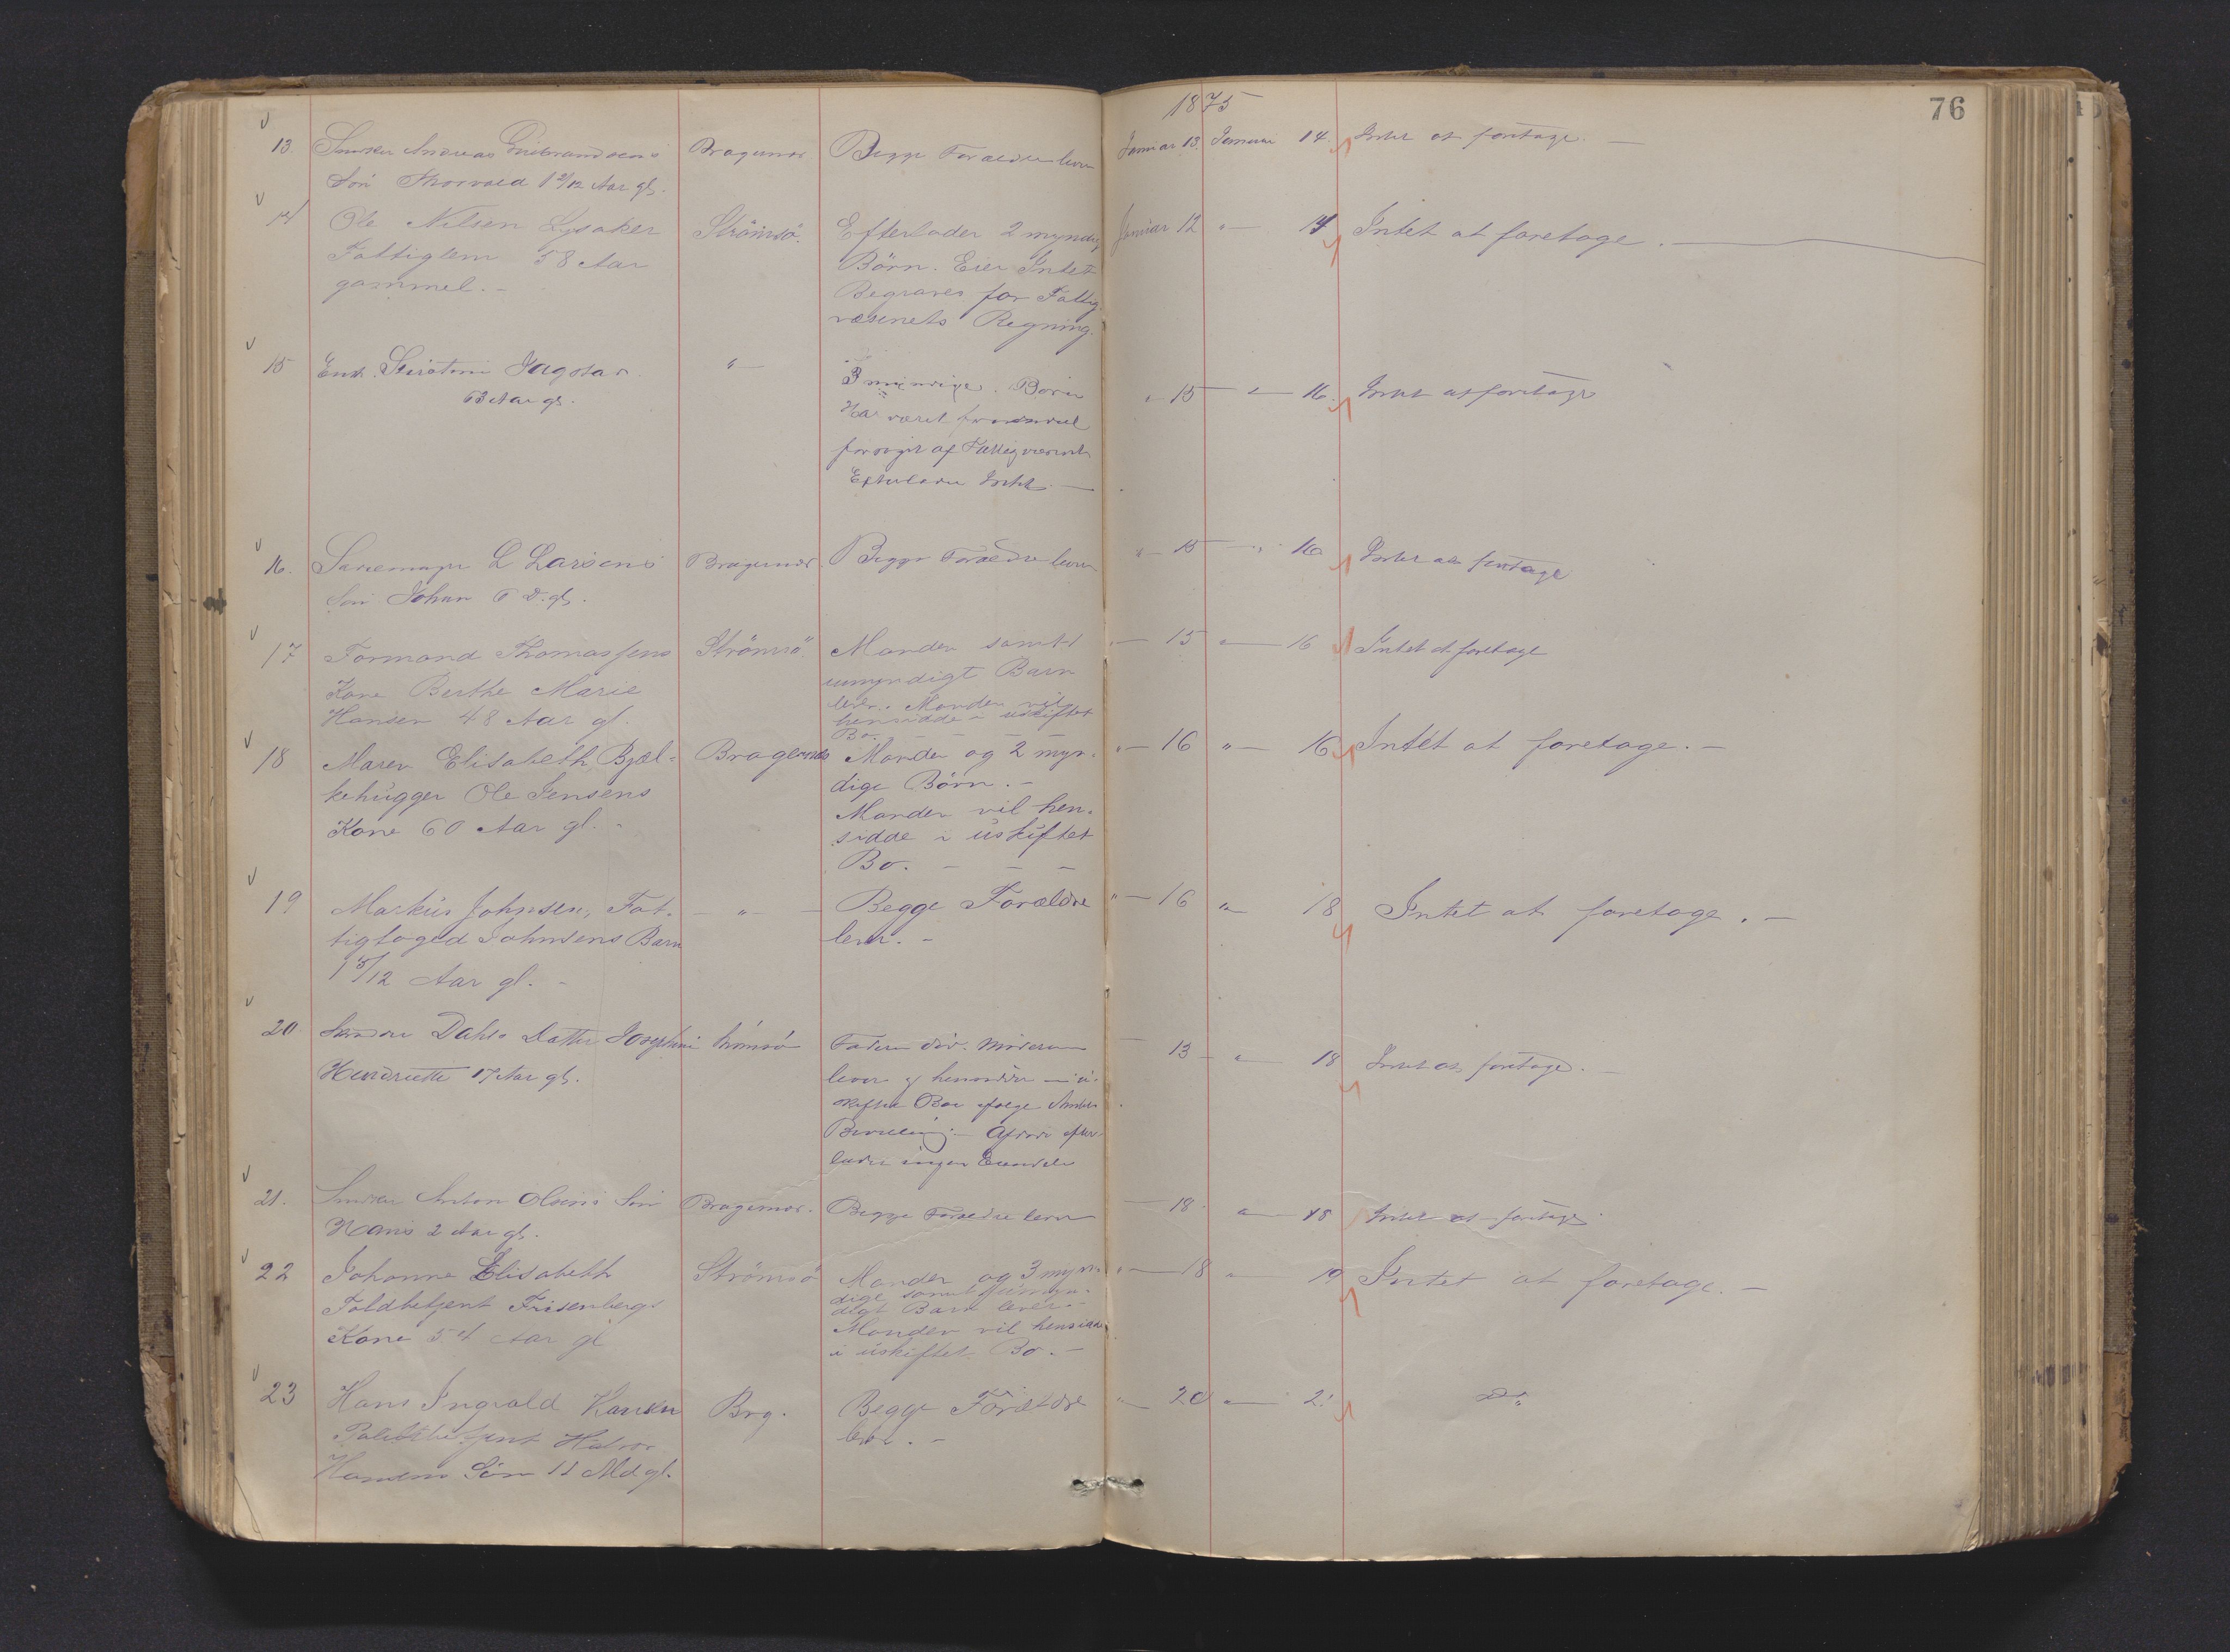 1875
76
13. Snedker Andreas Gulbrandsens Bragernes Begge Forældre lever Januar 13. Januar 14 Intet at foretage. —
Søn Thorvald 1 2/12 Aar gl.
14 Ole Nilsen Lysaker Strömsö. Efterlader 2 myndig Januar 12 " — 14 Intet at foretage. —
Fattiglem 58 Aar Börn. Eier Intet
gammel. - Begraves for Fattig
væsenets Regning.
15 Enk. " — 3 myndige Börn " 15 " — 16. Intet at foretage
73 Aar gl. Har været
forsørget af Fattigvæsenet
Efterlader Intet. —
16. L Larsens Bragernes Begge Forældre lever " — 15 — " 16 Intet at foretage
Søn Johan 6 D. gl.
17 Formand Thomassens Strömsö. Manden samt 1 " — 15 " — 16 Intet at foretage
Kone Berthe Marie umyndigt Barn
Hansen 48 Aar gl. lever. Manden vil
hensidde i uskiftet
Bo. — — — —
18 Maren Elisabeth Bjæl- Bragernes Manden og 2 myn- " — 16 " — 16 Intet at foretage. —
kehugger Ole Jensens dige Börn. -
Kone 60 Aar gl. - Manden vil hen-
sidde i uskiftet
Bo. — — —
19 Markus Johnsen, Fat- — " — Begge Forældre " — 16 " — 18 Intet at foretage. —
tigfoged Johnsens Barn lever. -
1 5/12 Aar gl. -
20 Dahls Datter Josephine Strömsö Faderen død. Moderen — 13 — " — 18 Intet at foretage. —
Hendriette 17 Aar gl. lever og hensidder i u-
skiftet Boe ifølge
Bevilling. — Afdøde efter-
lader ingen Eiendele
21. Snedker Anton Olsens Søn Bragernes. Begge Forældre lever — 18 " — 18 Intet at foretage
Hans 2 Aar gl.
22 Johanne Elisabeth Strömsö Manden og 3 myn- " — 18 " — 19 Intet at foretage. —
Toldbetjent Frisenbergs dige samt 1 umyn-
Kone 54 Aar gl digt Barn lever. -
Manden vil hensidde
i uskiftet Bo. —
23 Hans Ingvald Hansen Brg. Begge Forældre " — 20 " — 21
Politibetjent Halvor lever. -
Hansens Søn 11 Md gl.